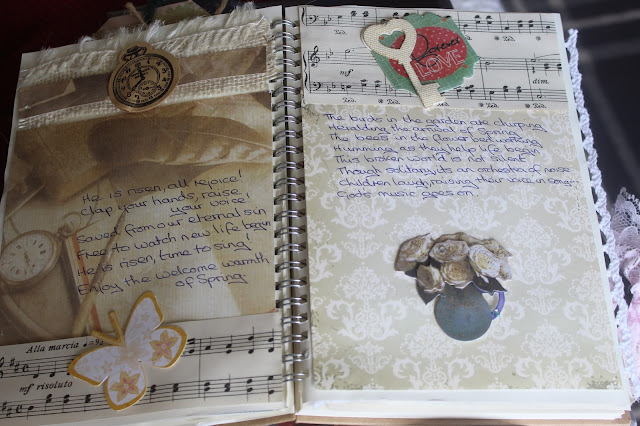 He is risen, all rejoice!
Clap your hands, raise
your voice!
Saved from our eternal sin
Free to watch new life begin
He is risen, time to sing!
Enjoy the welcome warmth
of Spring.
Alla marcia
mf risoluto
Ped.
Ped.
Forever
LOVE
mf
dim.
Ped.
Ped.
Ped.
Ped.
The birds in the garden are chirping
Heralding the arrival of Spring
The bees in the flower bed working
Humming as they help life begin
This broken world is not silent
Though solitary, its an orchestra of noise
Children laugh, raising their voice in song
Gods music goes on.